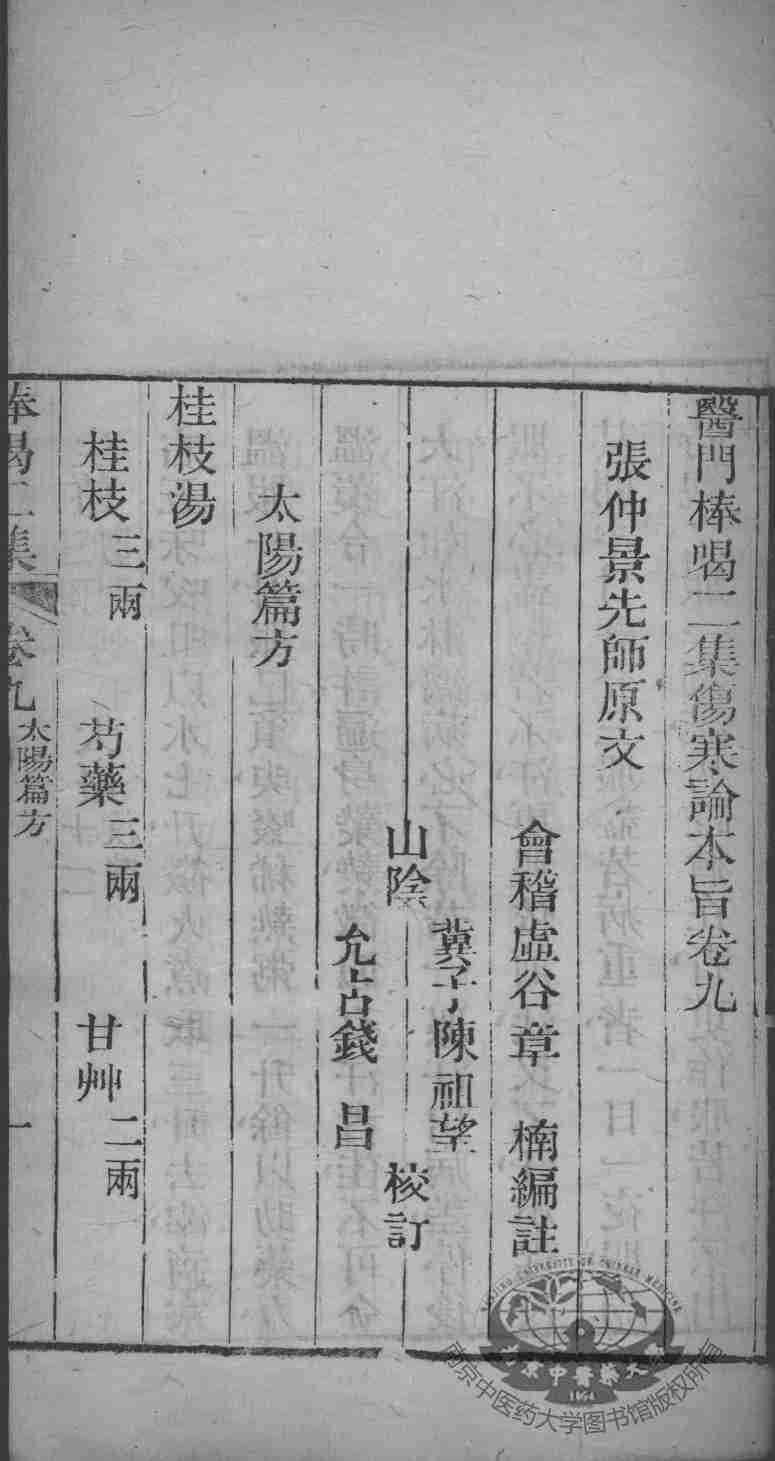 醫門棒喝二集傷寒論本旨卷九
張仲景先師原文
會稽虛谷章 楠編註
山陰
冀子陳祖望
允占錢 昌
校訂
太陽篇方
桂枝湯
桂枝三兩 芍藥三兩 甘艸二兩
棒喝二集 卷九 太陽篇方 一
南京中医药大学图书馆版权所有